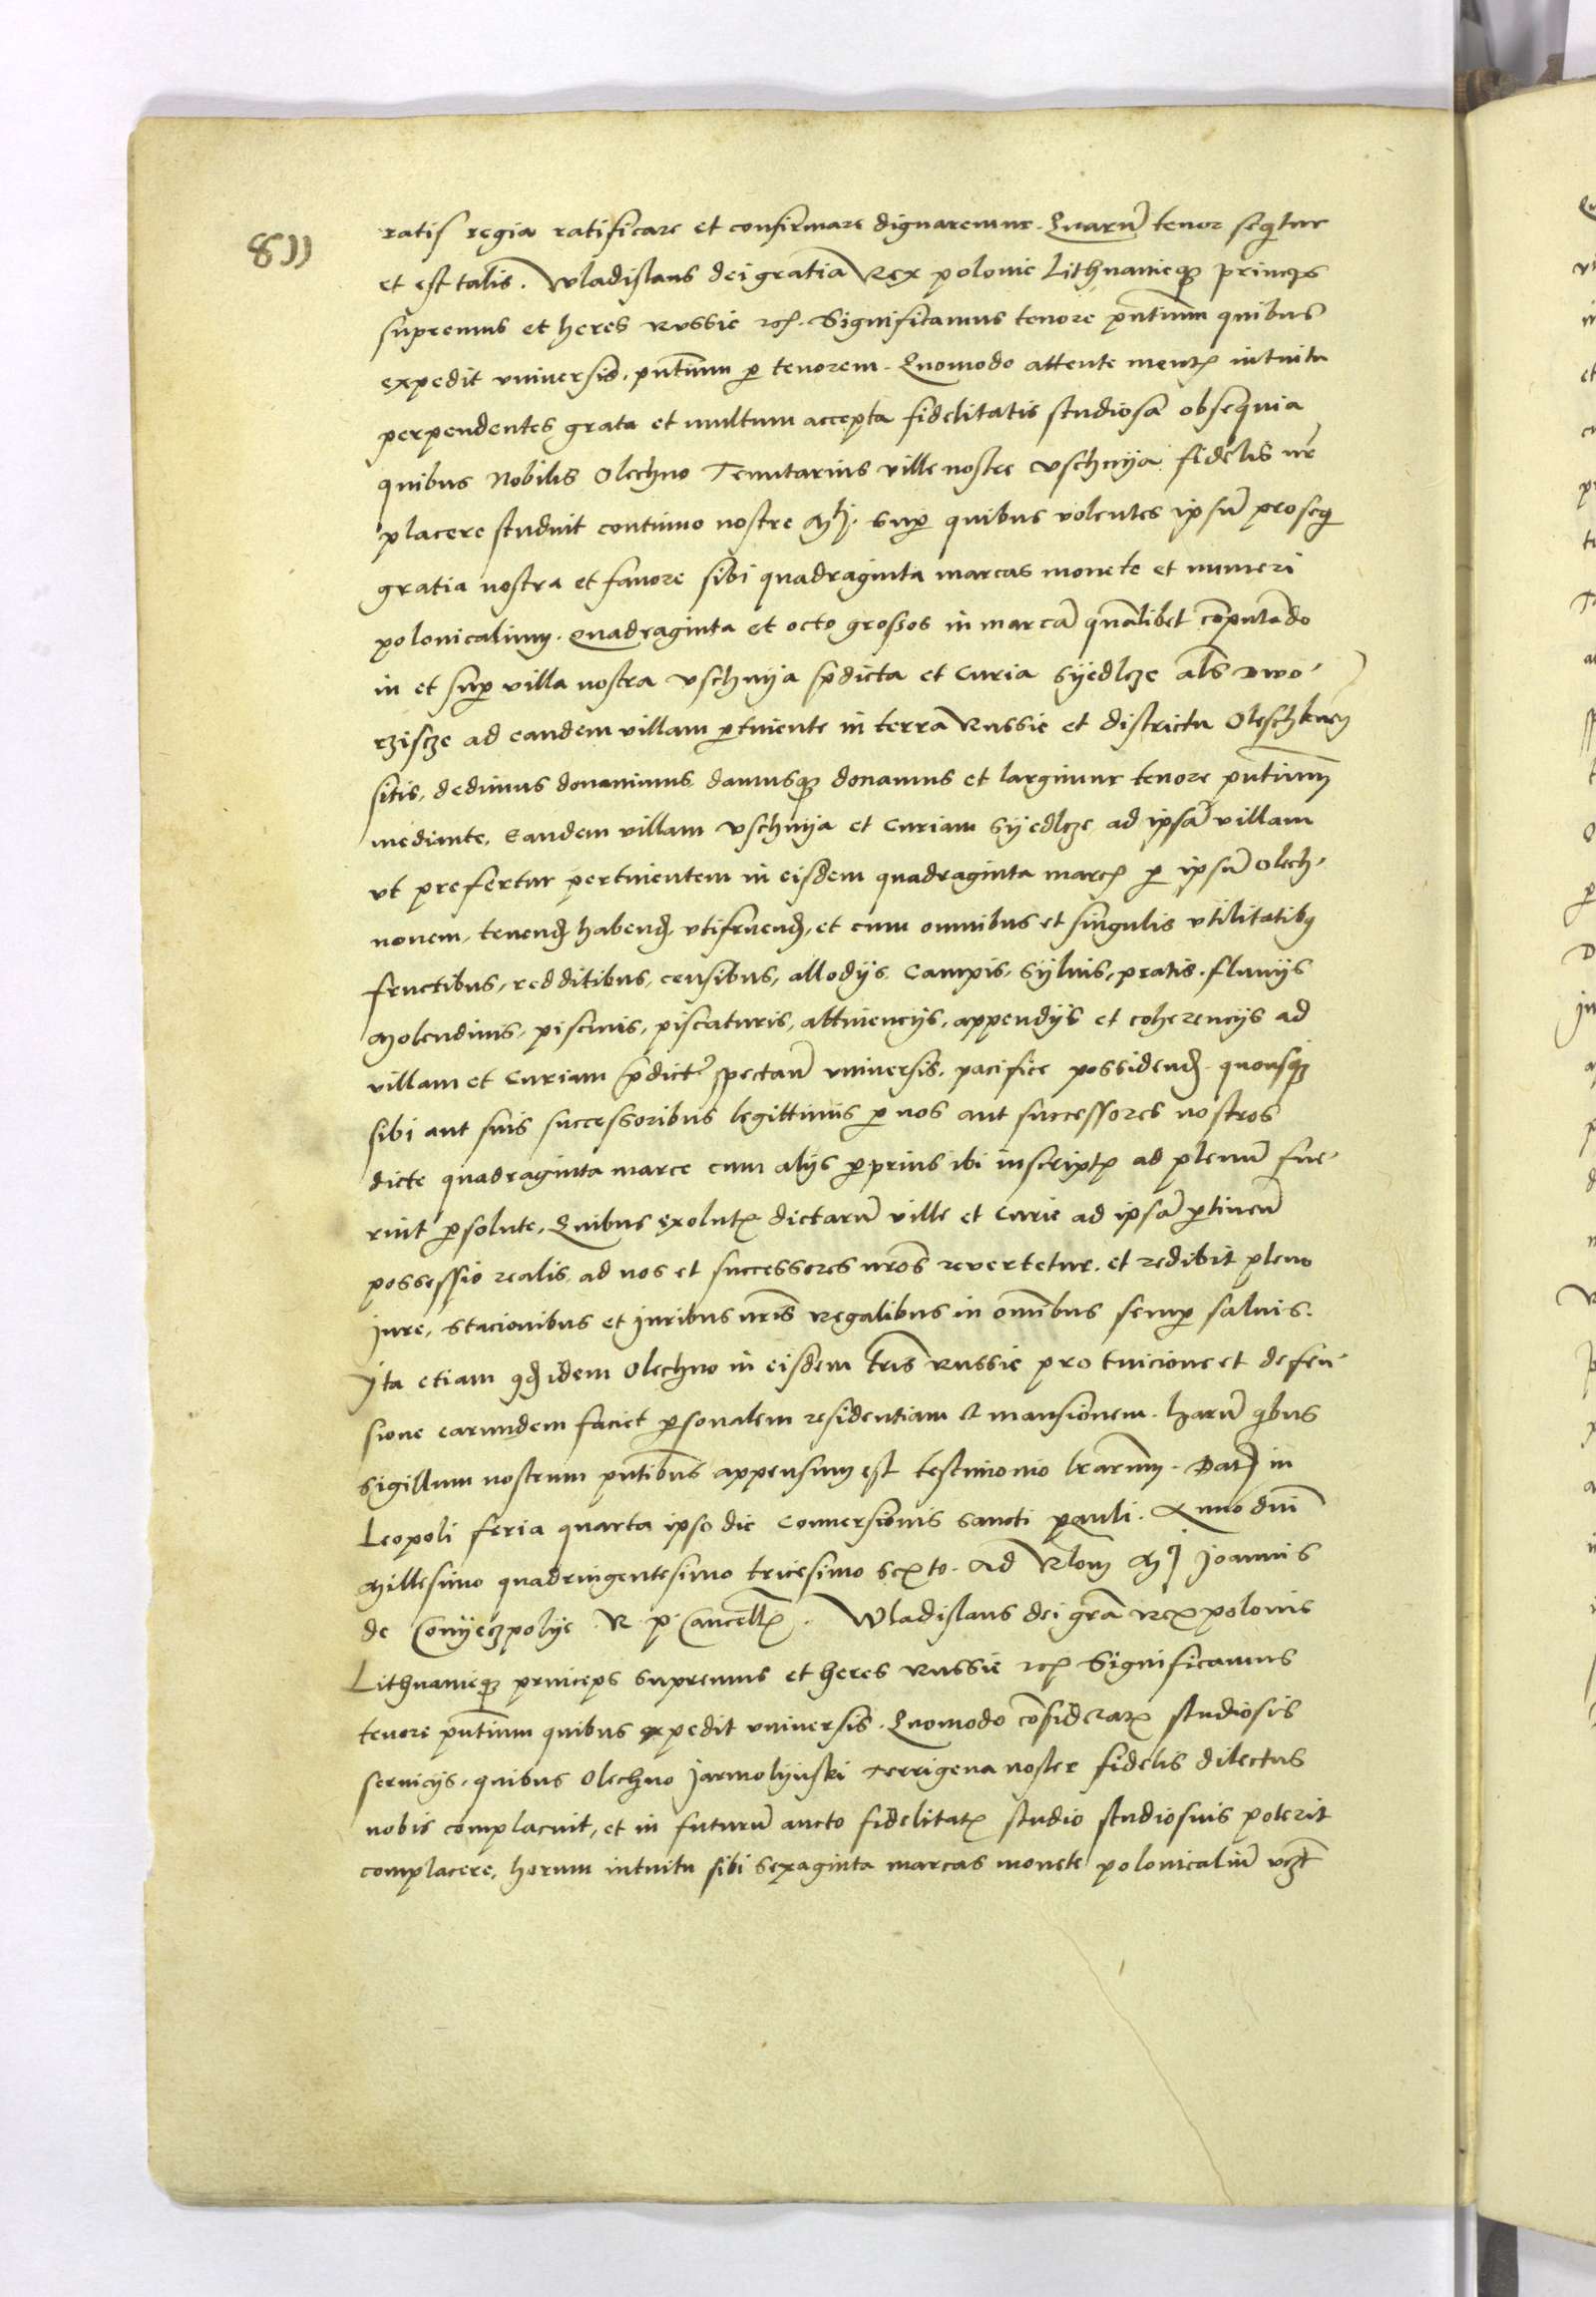 8))
ratis regia ratificare et confirmare dignaremur. Quarũ tenor seqͥtur
et est talis. Wladislaus dei gratia Rex polonie Lithuanieqꝫ princeps
supremus et heres Russie ⁊cꝭ. Significamus tenore pn̄tium quibus
expedit vniuersis, pn̄tium ꝑ tenorem. Quomodo attente mentꝭ intuitu
perpendentes grata et multum accepta fidelitatis studiosa obsequia
quibus Nobilis Olechno Tenutarius ville nostre vschnya fidelis nr̄
placere studuit continuo nostre Mti. Suꝑ quibus volentes ipsũ proseqͥ
gratia nostra et fauore sibi quadraginta marcas monete et numeri
polonicalium. Quadraginta et octo grossos in marcã quãlibet cõputãdo
in et suꝑ villa nostra vschnya p̄dicta et Curia Syedlcze al̄s Dwo-
rziscze ad eandem villam ꝑtinente in terra Russie et districtu Oleschkueñ
sitis, dedimus donauimus damusqꝫ donamus et largimur tenore pn̄tium
mediante. Eandem villam vschnya et Curiam Syedlcze ad ipsã villam
vt prefertur pertinentem in eisdem quadraginta marcꝭ ꝑ ipsũ Olech-
nonem, tenend̄ habend̄, vtifruend̄, et cum omnibus et singulis vtilitatibꝫ
fructibus, redditibus, censibus, allodijs, Campis, Syluis, pratis, fluuijs
Molendinis, piscinis, piscaturis, attinencijs, appendijs et coherencijs ad
villam et Curiam p̄dict̃ spectañ vniuersis, pacifice possidend̄ quousqꝫ
sibi aut suis successoribus legittimis ꝑ nos aut successores nostros
dicte quadraginta marce cum alijs ꝑprius ibi inscriptꝭ ad plenũ fue-
rint ꝑsolute. Quibus exolutꝭ dictarũ ville et Curie ad ipsã ꝑtineñ
possessio realis, ad nos et successores nr̄os reuertetur, et redibit pleno
Jure, stacionibus et Juribus nr̄is Regalibus in om̄ibus semꝑ saluis.
Ita etiam ꝙ idem Olechno in eisdem tr̄is Russie pro tuicione et defen-
sione earundem faciet ꝑsonalem residentiam et mansionem. harũ qͥbus
Sigillum nostrum pn̄tibus appensum est testimonio lr̄arum. Dat̄ in
Leopoli feria quarta ipso die Conuersionis Sancti pauli. Anno dn̄i
Millesimo quadringentesimo tricesimo sexto. Ad Rlom̄ Mci Joannis
de Conyeczpolye R. p. Cancellꝭ. Wladislaus dei gr̄a Rex polonie
Lithuanieqꝫ princeps supremus et heres Russie ⁊cꝭ Significamus
tenore pn̄tium quibus expedit vniuersis. Quomodo cõsideratꝭ studiosis
seruicijs, quibus Olechno Jarmolynski Terrigena noster fidelis dilectus
nobis complacuit, et in futurũ aucto fidelitatꝭ studio studiosius poterit
complacere, horum intuitu sibi sexaginta marcas monete polonicaliũ vcꝫt